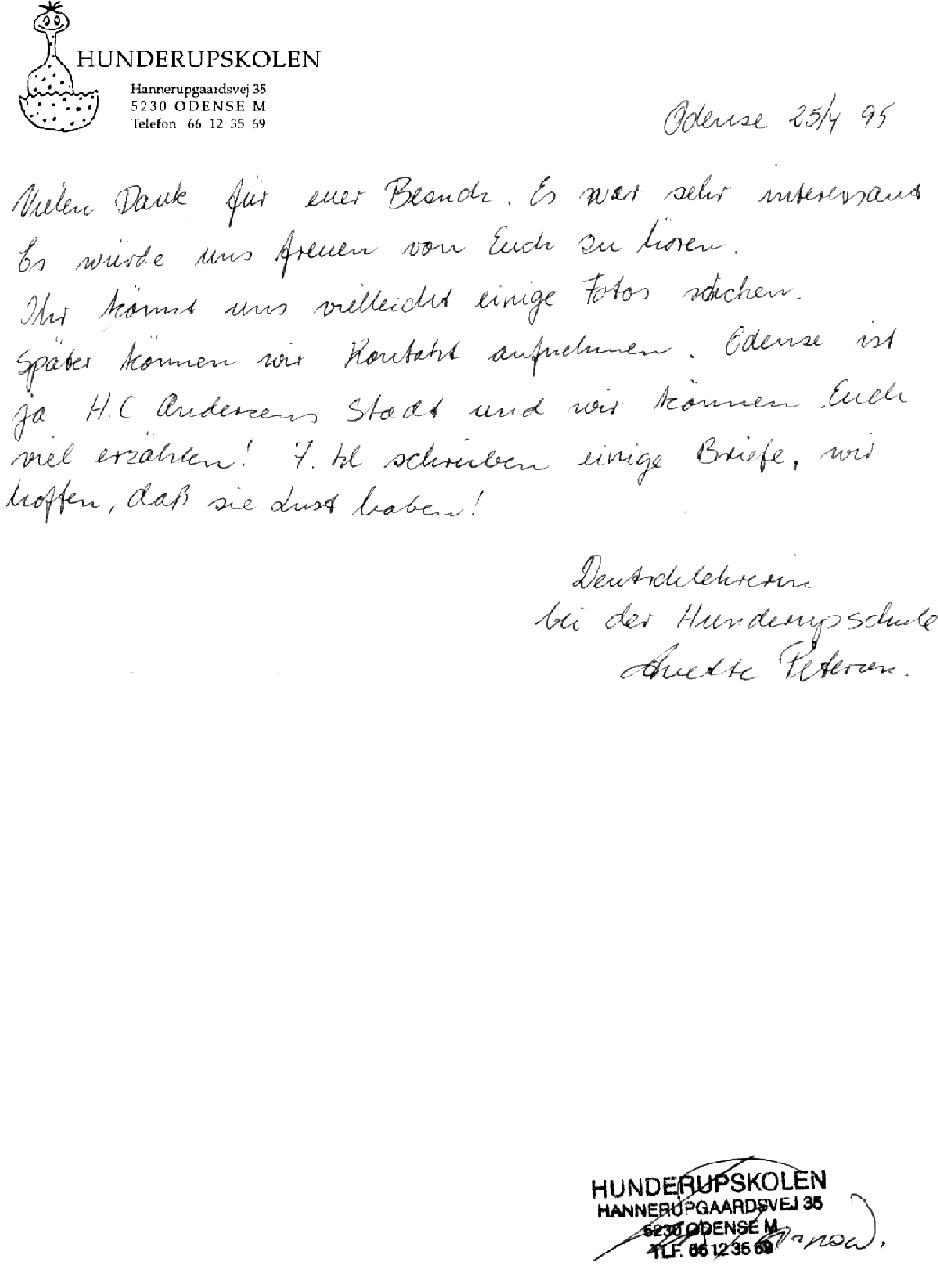 HUNDERUPSKOLEN
Hannerupgaardsvej 35
5230 ODENSE M
Telefon 66 12 35 69
Odense 25/4 95
Vielen Dank für euer Besuch. Es war sehr interessant
Es würde uns freuen von Euch zu hören.
Ihr könnt uns vielleicht einige Fotos schicken.
Später können wir Kontakt aufnehmen. Odense ist
ja H.C Andersens Stadt und wir können Euch
viel erzählen! 7. kl schreiben einige Briefe, wir
hoffen, daß sie Lust haben!
Deutschlehrerin
bei der Hunderupschule
Anette Petersen.
HUNDERUPSKOLEN
HANNERUPGAARDSVEJ 35
5230 ODENSE M
TLF. 66 12 35 69